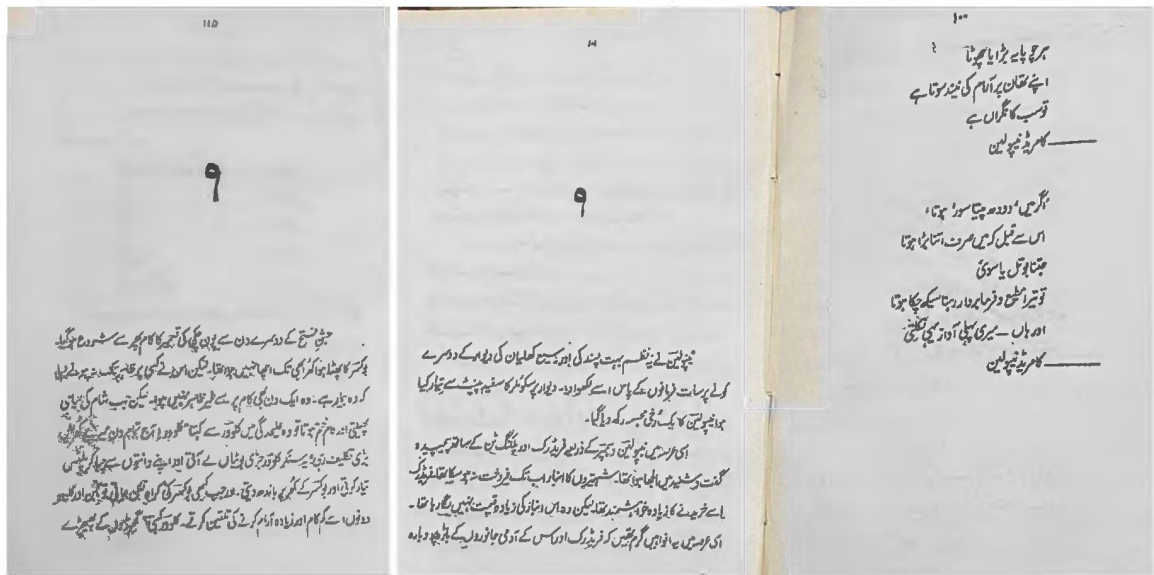 ۱۰۰
ہر چوپایہ بڑا یا چھوٹا
اپنے تھان پر آرام کی نیند سوتا ہے
تو سب کا نگراں ہے
کامریڈ نپولین
اگر میں ' دودھ پیتا سور ' ہوتا '
اس سے قبل کہ میں صرف اتنا بڑا ہوتا
جتنا بوتل یا سوئی
تو تیرا مطیع و فرمابردار رہنا سیکھ چکا ہوتا
اور ہاں ۔ میری پہلی آواز یہی نکلتی
کامریڈ نپولین
۹
نپولین نے یہ نظم بہت پسند کی اور وسیع کھلیان کی دیوار کے دوسرے
کونے پر سات فرمانوں کے پاس اسے لکھوا دیا۔ دیوار پر سکوئلر کا سفید پینٹ سے تیار کیا
ہوا نپولین کا یک رخی مجسمہ رکھ دیا گیا۔
اسی عرصہ میں نپولین وہمپر کے ذریعے فریڈرک اور پلکنگ ٹن کے ساتھ پیچیدہ
گفت و شنید میں الجھا ہوا تھا۔ شہتیروں کا انبار اب تک فروخت نہ ہو سکا تھا۔ فریڈرک
اسے خریدنے کا زیادہ خواہشمند تھا لیکن وہ اس انبار کی زیادہ قیمت نہیں لگا رہا تھا۔
اسی عرصہ میں یہ افواہیں گرم تھیں کہ فریڈرک اور اس کے آدمی جانوروں کے باڑہ پر دوبارہ
۱۱۵
۹
جشن فتح کے دوسرے دن سے پون چکی کی تعمیر کا کام پھر سے شروع ہو گیا۔
بوکسر کا پھٹا ہوا کھر ابھی تک اچھا نہیں ہوا تھا۔ لیکن اس نے کسی پر ظاہر تک نہ ہونے دیا
کہ وہ بیمار ہے۔ وہ ایک دن بھی کام پر سے غیر حاضر نہیں ہوا۔ لیکن جب شام کی سیاہی
پھیلتی اور کام ختم ہوتا تو وہ علیحدگی میں کلوور سے کہتا کلوور! آج تمام دن میرے کھر میں
بڑی تکلیف رہی۔ یہ سنکر کلوور جڑی بوٹیاں لے آتی اور اپنے دانتوں سے چبا کر پلٹس
تیار کرتی اور بوکسر کے کھر پر باندھ دیتی۔ اور جب کبھی بوکسر کی
دونوں اسے کم کام اور زیادہ آرام کرنے کی تلقین کرتے۔ کلوور کہتی گھوڑوں کے پھیپھڑے